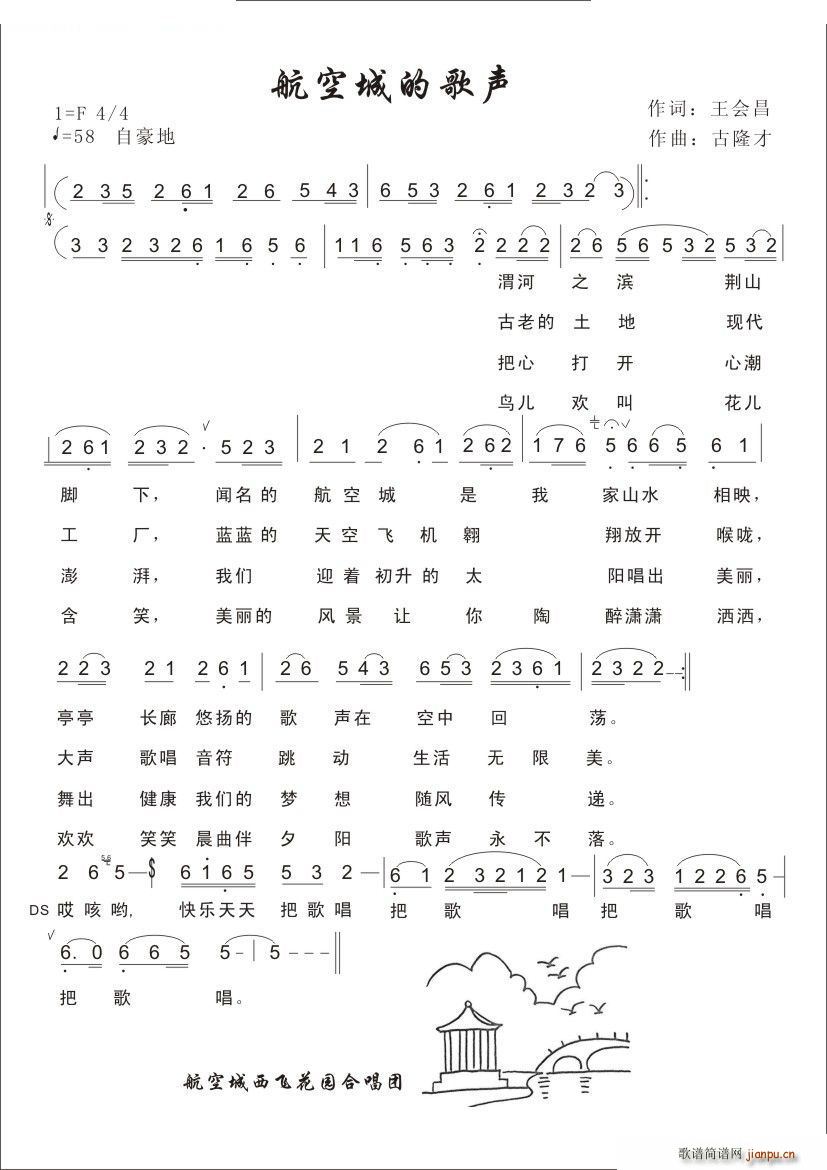 航空城的歌声
1=F 4/4
作词：王会昌
♩=58 自豪地
作曲：古隆才
( 2 3 5 2 6 1 2 6 5 4 3 | 6 5 3 2 6 1 2 3 2 3 ) :
3 3 2 3 2 6 1 6 5 6 | 1 1 6 5 6 3 2 2 2 2 | 2 6 5 6 5 3 2 5 3 2 |
渭河 之 滨 荆山
古老的 土 地 现代
把心 打 开 心潮
鸟儿 欢 叫 花儿
2 6 1 2 3 2 · 5 2 3 | 2 1 2 6 1 2 6 2 | 1 7 6 5 6 6 5 6 1 |
脚 下， 闻名的 航空城 是 我 家山水 相映，
工 厂， 蓝蓝的 天空飞机翱 翔放开 喉咙，
澎 湃， 我们 迎着初升的太 阳唱出 美丽，
含 笑， 美丽的 风景让 你 陶 醉潇潇 洒洒，
2 2 3 2 1 2 6 1 | 2 6 5 4 3 6 5 3 2 3 6 1 | 2 3 2 2 -- :
亭亭 长廊 悠扬的 歌 声在 空中 回 荡。
大声 歌唱 音符 跳 动 生活 无 限 美。
舞出 健康 我们的 梦 想 随风 传 递。
欢欢 笑笑 晨曲伴 夕 阳 歌声 永 不 落。
2 6 5 — 6 1 6 5 5 3 2 — | 6 1 2 3 2 1 2 1 — | 3 2 3 1 2 2 6 5 - |
DS 哎咳哟, 快乐天天 把歌唱 把 歌 唱 把 歌 唱
6. 0 6 6 5 5 - | 5 - - -
把 歌 唱。
航空城西飞花园合唱团
歌谱简谱网 jianpu.cn